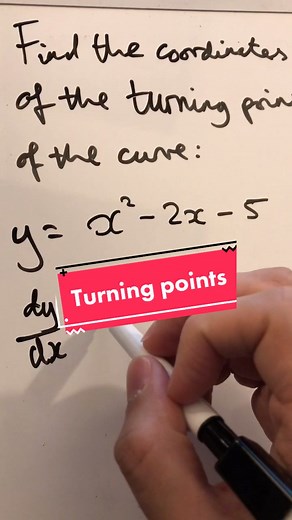 Find the coordinates
of the turning poin
of the curve:
y = x² - 2x - 5
dy
Turning points
dx